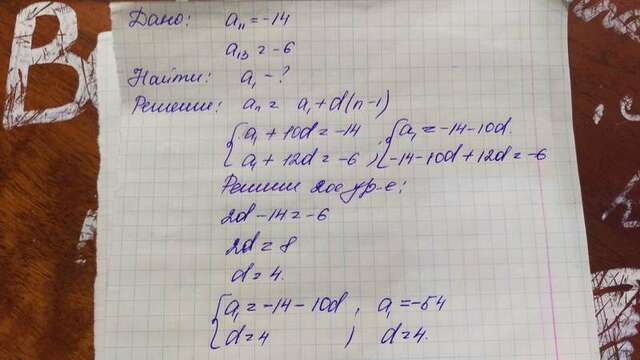 Дано: a₁₁ = -14
a₁₃ = -6
Найти: a₁ - ?
Решение: aₙ = a₁ + d(n-1)
{a₁ + 10d = -14 , {a₁ = -14 - 10d.
{a₁ + 12d = -6 ) {-14 - 10d + 12d = -6
Решим 2ое ур-е:
2d - 14 = -6
2d = 8
d = 4.
{a₁ = -14 - 10d , a₁ = -54
{d = 4 ) d = 4.